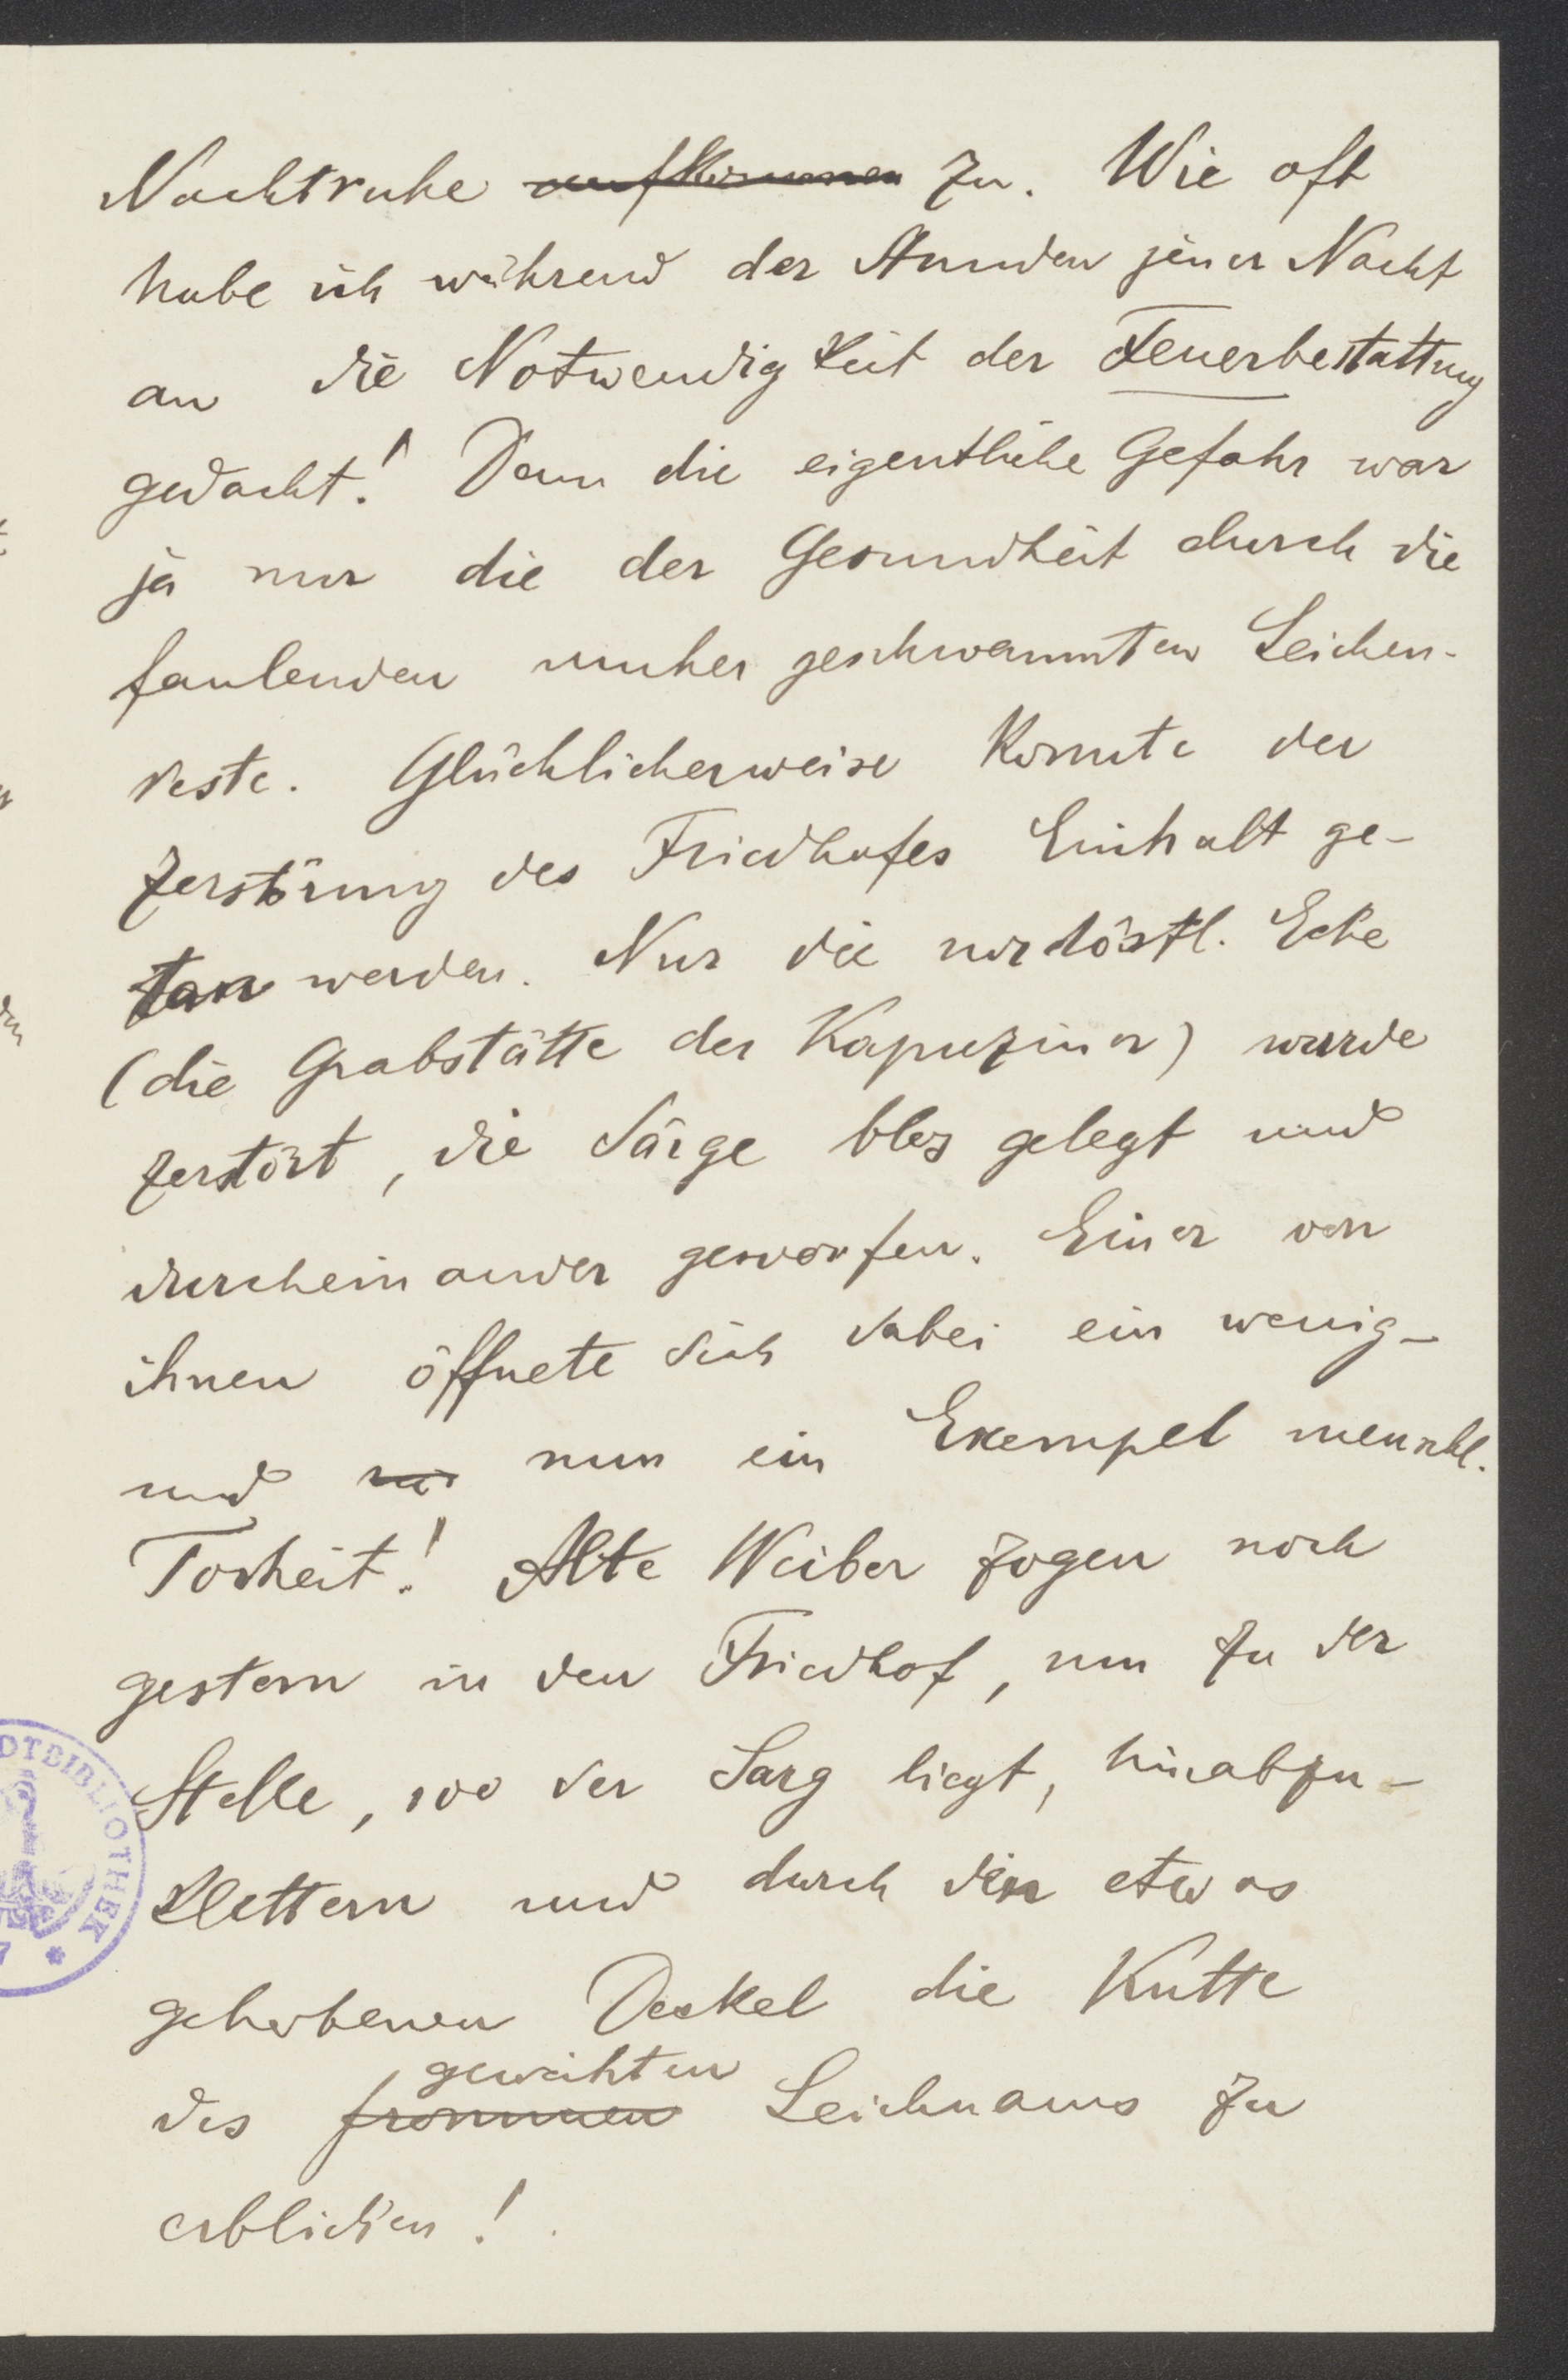 Nachtruhe aufkommen zu. Wie oft
habe ich während der Stunden jener Nacht
an die Notwendigkeit der Feuerbestattung
gedacht! Denn die eigentliche Gefahr war
ja nur die der Gesundheit durch die
faulenden umher geschwemmten Leichen-
reste. Glücklicherweise konnte der
Zerstörung des Friedhofes Einhalt ge-
tan werden. Nur die nordöstl. Ecke
(die Grabstätte der Kapuziner) wurde
zerstört, die Särge blos gelegt und
durcheinander geworfen. Einer von
ihnen öffnete sich dabei ein wenig-
und nun ein Exempel menschl.
Torheit! Alte Weiber zogen noch
gestern in den Friedhof, um zu der
Stelle, wo der Sarg liegt, hinabzu-
klettern und durch den etwas
gehobenen Deckel die Kutte
geweihten
des frommen Leichnams zu
erblicken!
DTBIBLIOTHEK
7